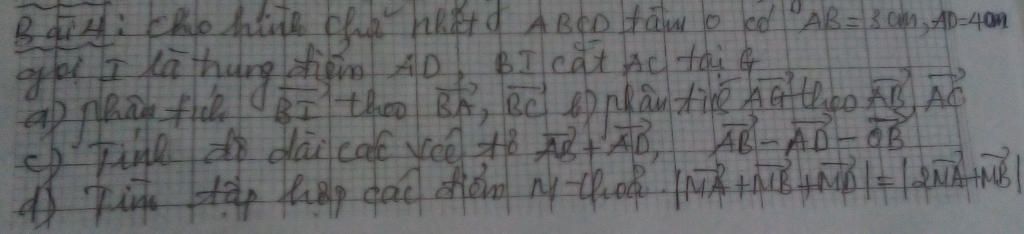 Bài 4: Cho hình chữ nhật ABCD tâm O có AB = 3cm, AD = 4cm
gọi I là trung điểm AD, BI cắt AC tại G
a) phân tích \(\overrightarrow{BI}\) theo \(\overrightarrow{BA}\), \(\overrightarrow{BC}\) b) phân tích \(\overrightarrow{AG}\) theo \(\overrightarrow{AB}\), \(\overrightarrow{AC}\)
c) Tính độ dài các véc tơ \(\overrightarrow{AB}+\overrightarrow{AD}\), \(\overrightarrow{AB}-\overrightarrow{AD}-\overrightarrow{OB}\)
d) Tìm tập hợp các điểm M thoả \(|\overrightarrow{MA}+\overrightarrow{MB}+\overrightarrow{MD}|=|2\overrightarrow{MA}+\overrightarrow{MB}|\)